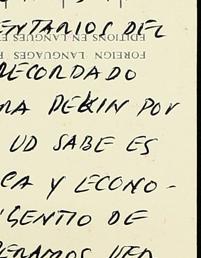 ENTARIOS DEL
EDITIONS EN LANGUES E
FOREIGN LANGUAGES
RECORDADO
RA PEKIN POR
UD SABE ES
CA Y ECONO-
SENTIO DE